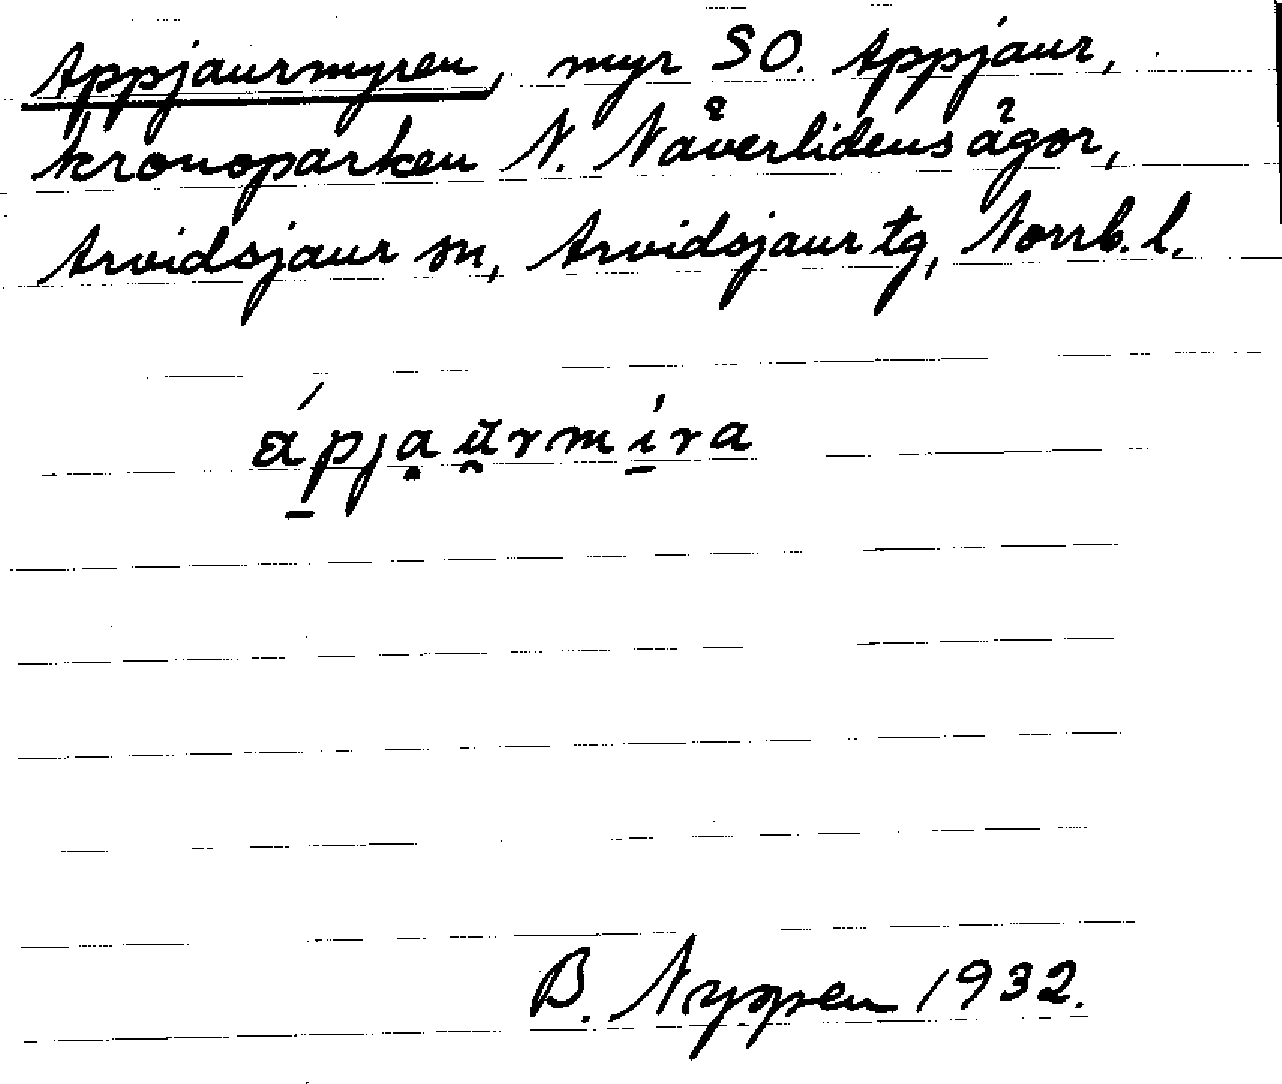 Appjaurmyren, myr SO. Appjaur,
kronoparken N. Näverlidens ägor,
Arvidsjaur sn, Arvidsjaur tg, Norrb. l.
ápja̤u̯rmíra
B. Nyppen 1932.